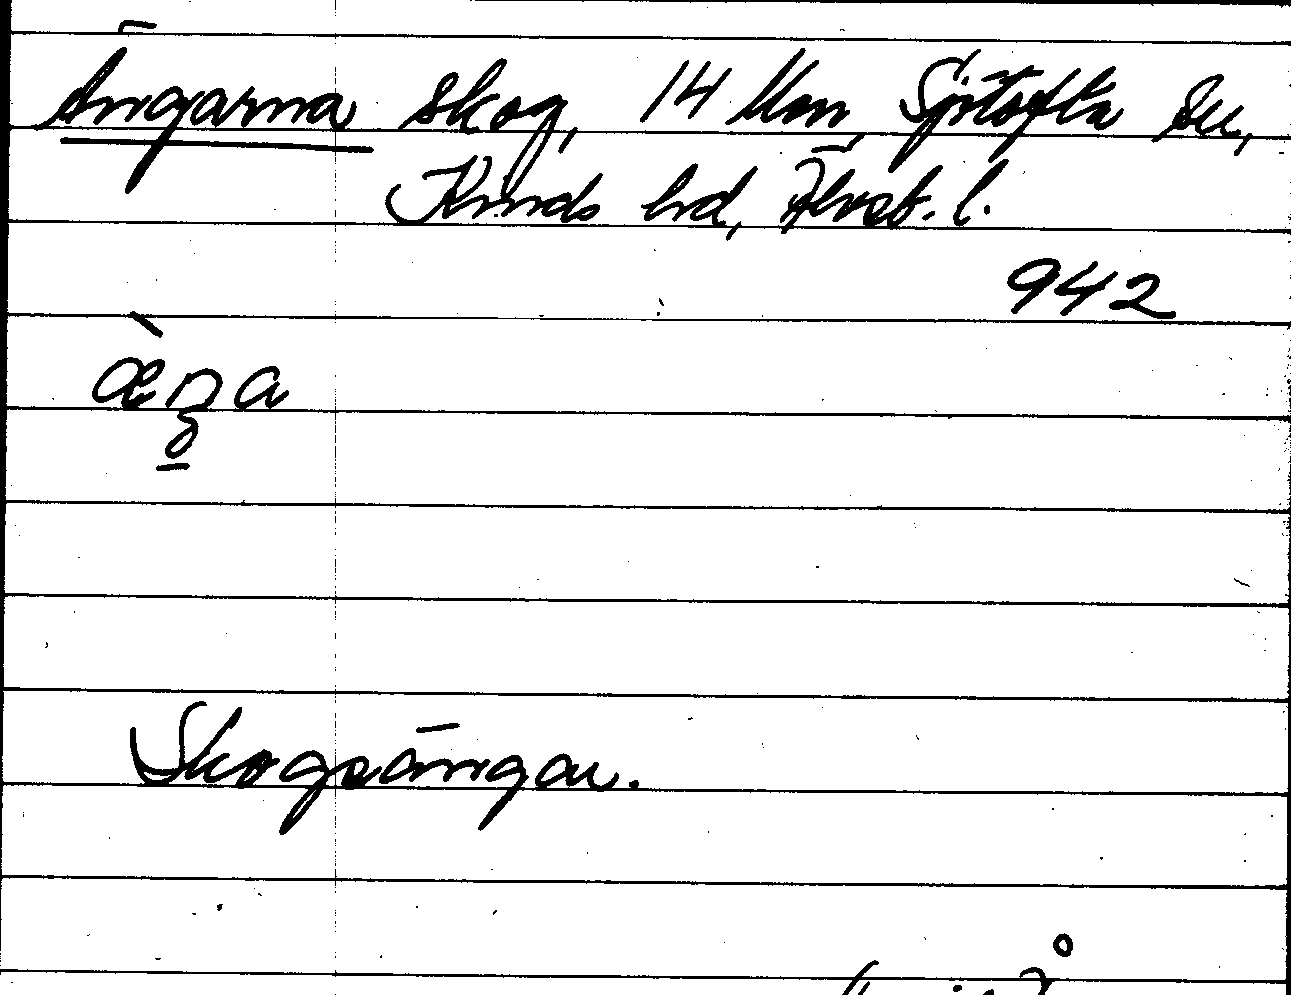 Ängarna skog, 14 Uon, Sjötofta sn,
Kinds hd, Älvsb. l.
942
æ̀ŋa
Skogsängar.